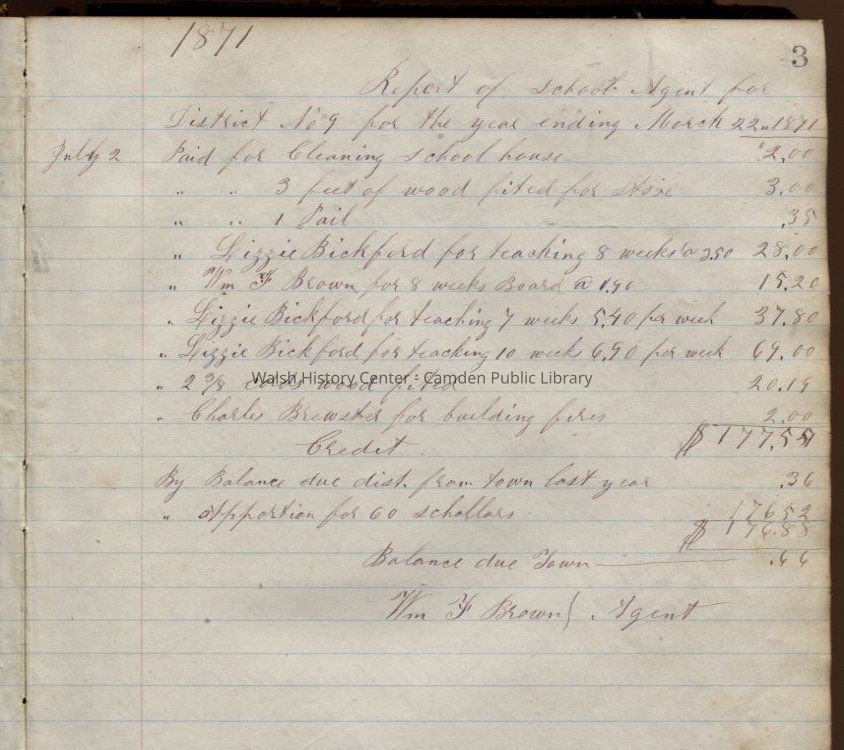 1871
3
Report of School Agent for
District No 9 for the year ending March 22, 1871
July 2 Paid for Cleaning School house 2,00
" " 3 feet of wood fited for stove 3.00
" " 1 Pail .35
" Lizzie Bickford for teaching 8 weeks @ 3,50 28,00
" Wm F Brown for 8 weeks Board @ 1,90 15,20
" Lizzie Bickford for teaching 7 weeks 5,40 per week 37.80
" Lizzie Bickford for teaching 10 weeks 6,90 per week 69,00
" 2 wood fited 20.19
Walsh History Center - Camden Public Library
" Charles Brewster for building fires 2.00
Credit $177,54
By Balance due dist. from town last year .36
" apportion for 60 schollars 176.52
$ 176.88
Balance due Town .66
Wm F Brown } Agent